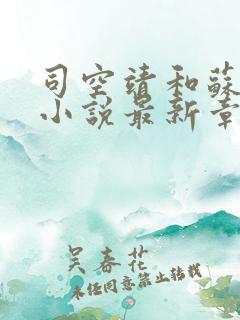 司空靖和蘇
小說最新章
吴春花
未经同意禁止转载